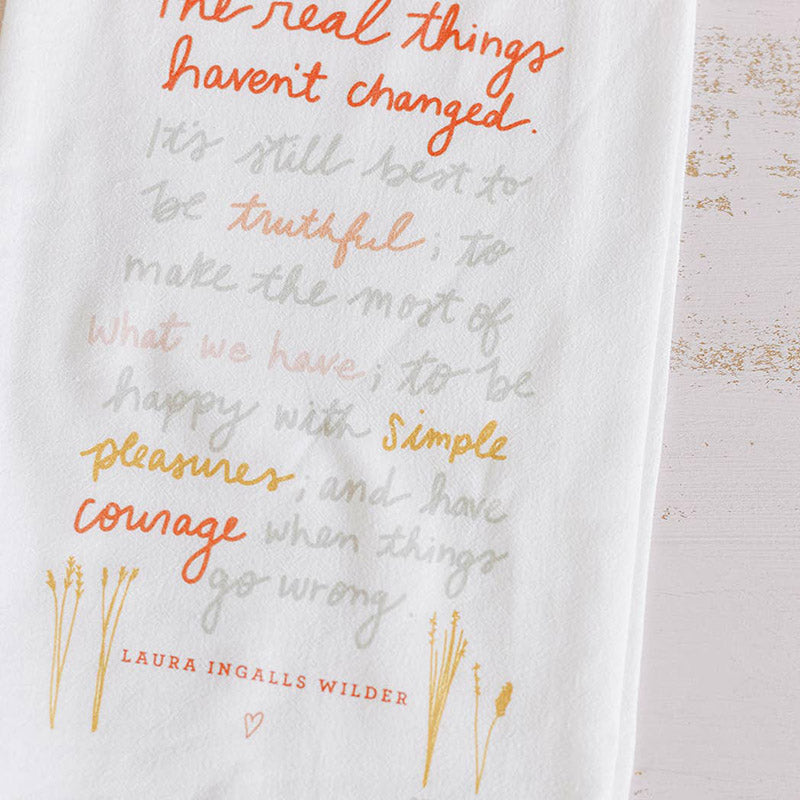 The real things
haven't changed.
It's still best to
be truthful; to
make the most of
what we have; to be
happy with simple
pleasures; and have
courage when things
go wrong.
LAURA INGALLS WILDER